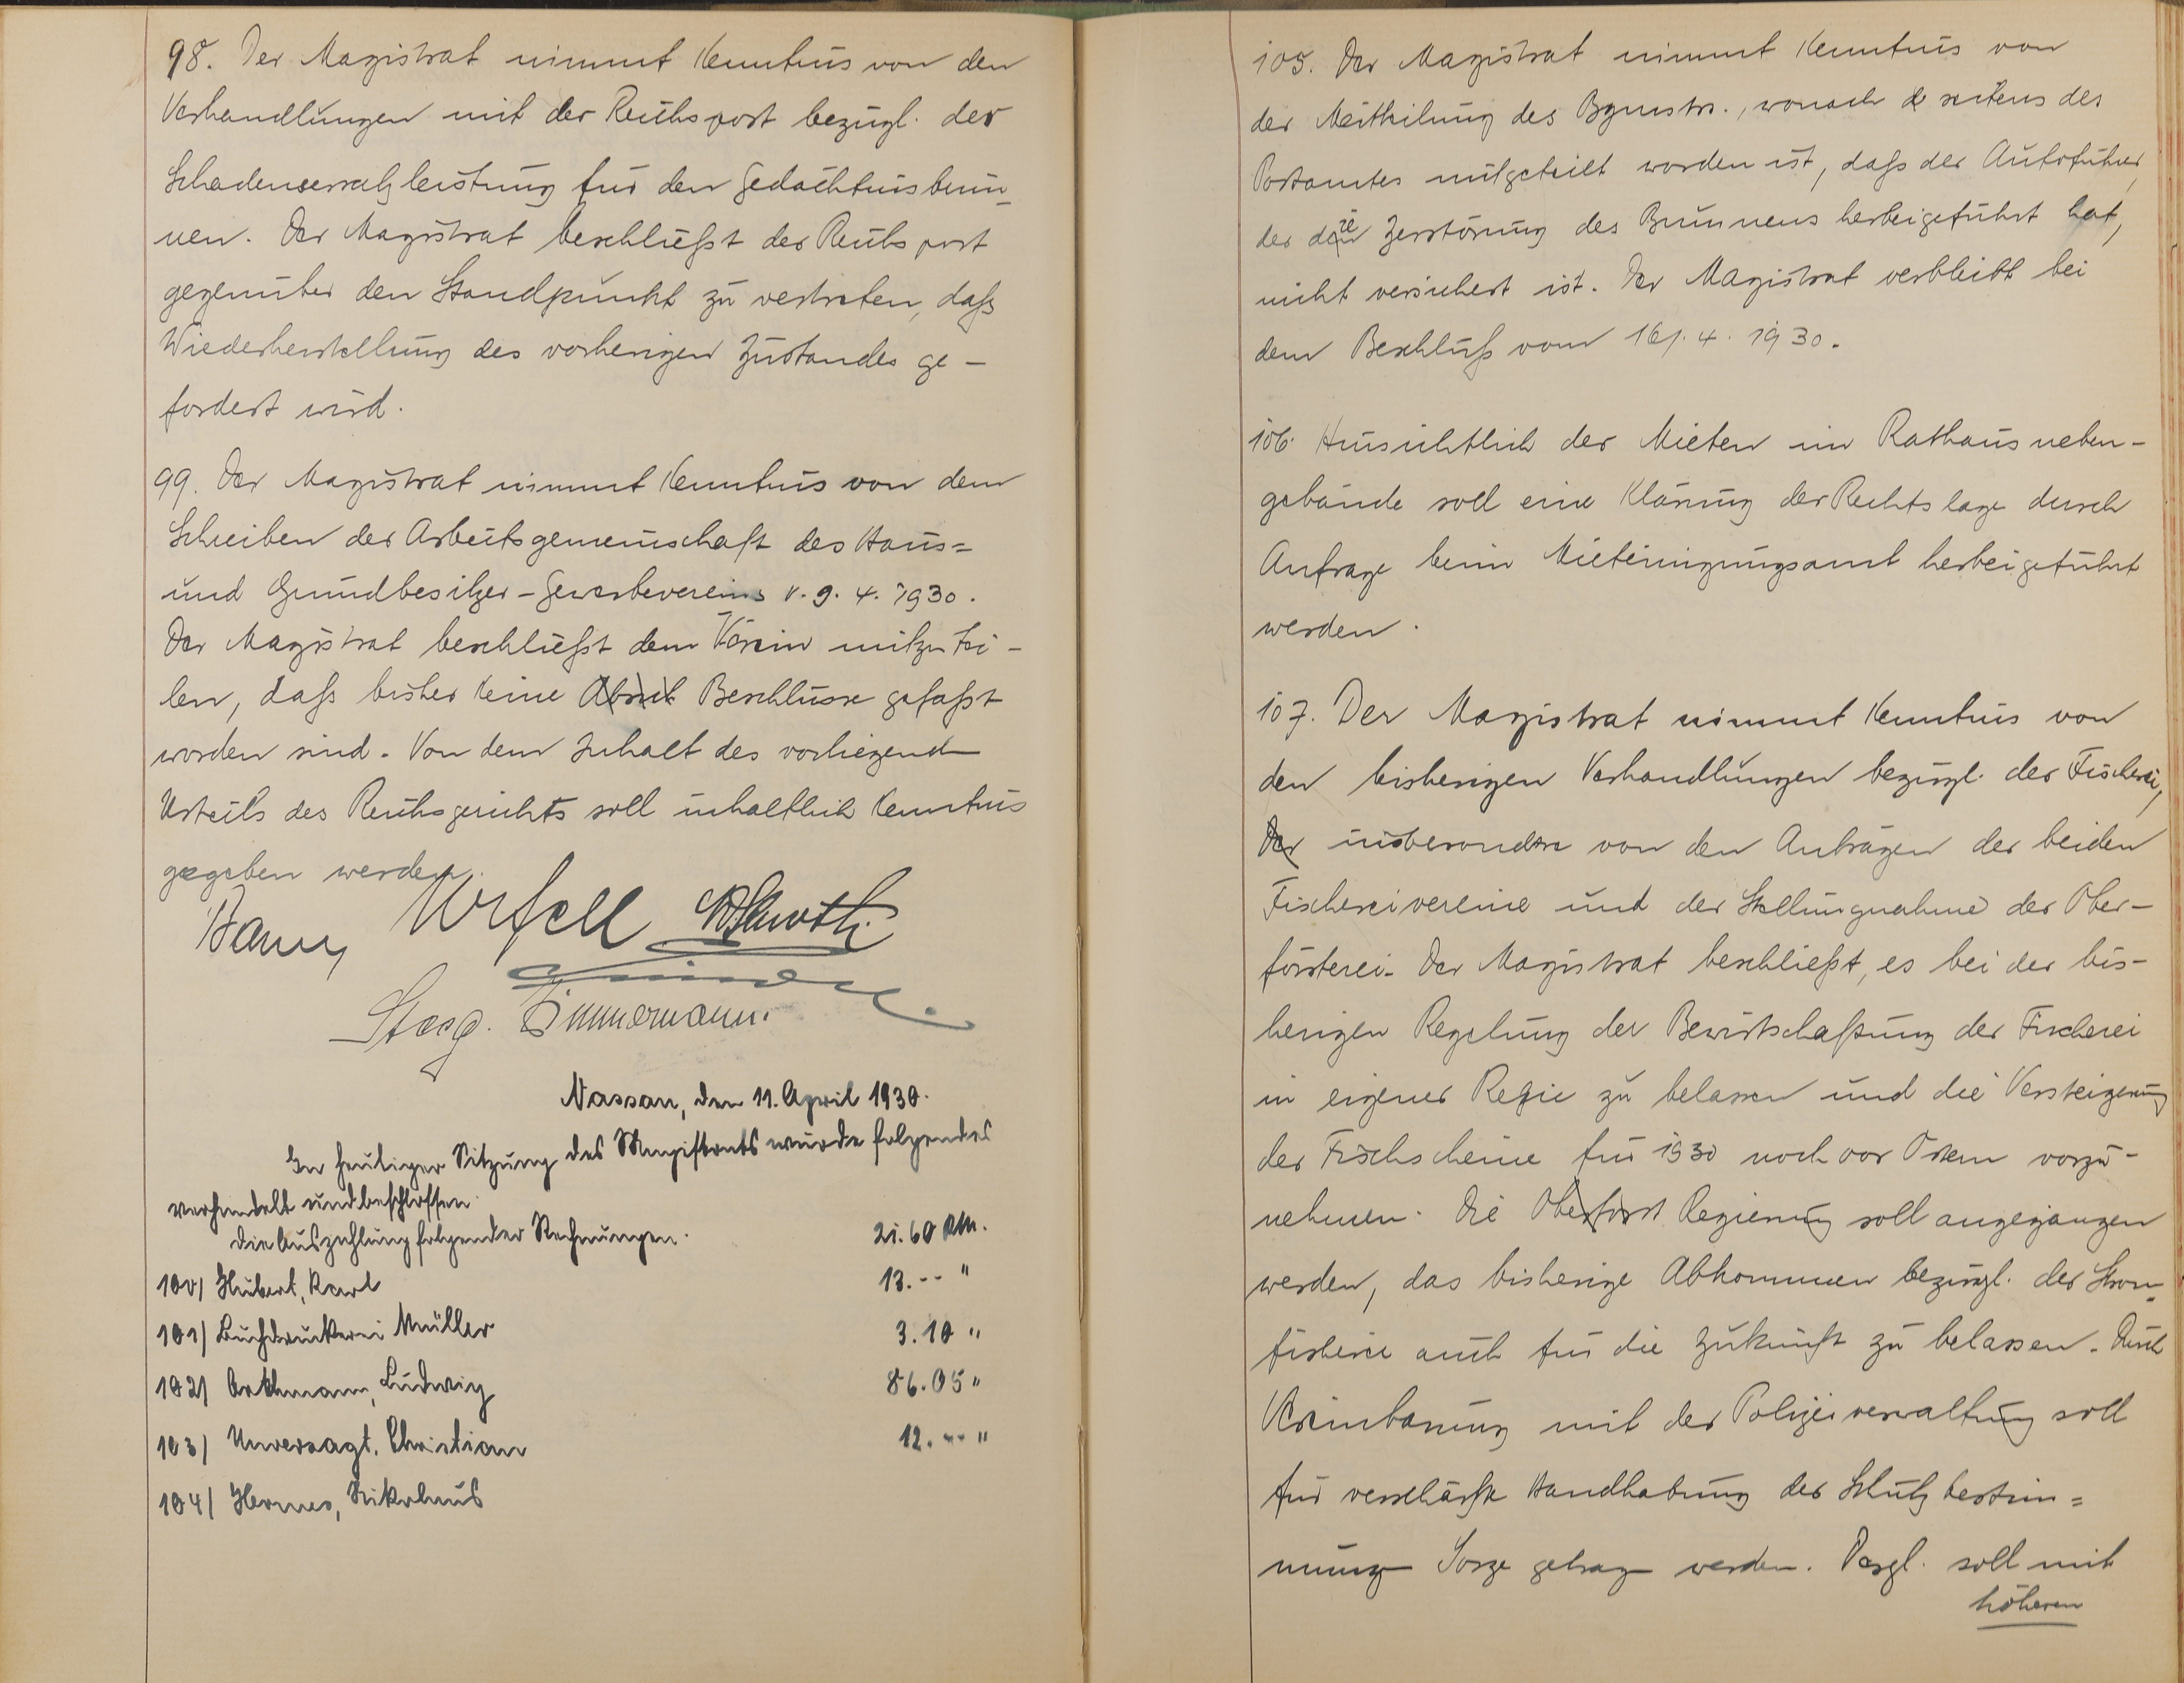 98. Der Magistrat nimmt Kenntnis von den
Verhandlungen mit der Reichspost bezügl. der
Schadensersatzleistung für den Gedächtnisbrun-
nen. Der Magistrat beschließt der Reichspost
gegenüber den Standpunkt zu vertreten, daß
Wiederherstellung des vorherigen Zustandes ge-
fordert wird.
99. Der Magistrat nimmt Kenntnis von dem
Schreiben der Arbeitsgemeinschaft des Haus=
und Grundbesitzer-Gewerbevereins v. 9. 4. 1930.
Der Magistrat beschließt dem Verein mitzutei-
len, daß bisher keine Beschlüsse gefaßt
worden sind. Von dem Inhalt des vorliegenden
Urteils des Reichsgerichts soll inhaltlich Kenntnis
gegeben werden.
Zimmermann.
Nassau, den 11. April 1930.
In heutiger Sitzung des Magistrats wurde folgendes
verhandelt und beschlossen
die Auszahlung folgender Rechnungen.
21.60 RM.
100/ Hubert, Karl
13.-- "
101/ Buchdruckerei Müller
3.10 "
102/ Arthmann, Ludwig
86.05 "
103/ Unverzagt, Christian
12.-- "
104/ Hermes, Nikolaus
105. Der Magistrat nimmt Kenntnis von
der Mitteilung des Bgmstrs., wonach seitens des
Postamtes mitgeteilt worden ist, daß der Autoführer,
der die Zerstörung des Brunnens herbeigeführt hat,
nicht versichert ist. Der Magistrat verbleibt bei
dem Beschluß vom 4. 1930.
106. Hinsichtlich der Mieten im Rathausneben-
gebäude soll eine Klärung der Rechtslage durch
Anfrage beim Mieteinigungsamt herbeigeführt
werden.
107. Der Magistrat nimmt Kenntnis von
den bisherigen Verhandlungen bezügl. der Fischerei,
Der insbesondere von den Anträgen der beiden
Fischereivereine und der Stellungnahme der Ober-
försterei. Der Magistrat beschließt, es bei der bis-
herigen Regelung der Bewirtschaftung der Fischerei
in eigener Regie zu belassen und die Versteigerung
der Fischscheine für 1930 noch vor Ostern vorzu-
nehmen. Die Oberforst Regierung soll angegangen
werden, das bisherige Abkommen bezügl. der Strom-
fischerei auch für die Zukunft zu belassen. Durch
Vereinbarung mit der Polizeiverwaltung soll
für verschärfte Handhabung der Schutzbestim=
mungen Sorge getragen werden. Desgl. soll mit
höheren